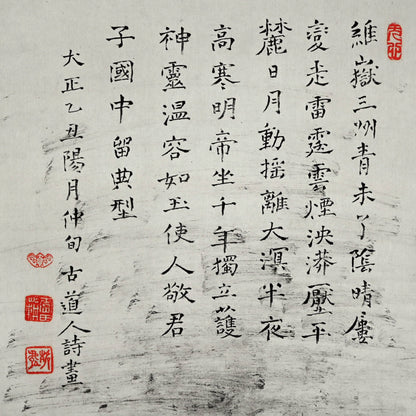 維嶽三州青未了陰晴屢
變走雷霆雲煙泱漭壓平
麓日月動搖離大溟半夜
高寒明帝坐千年獨立護
神靈溫容如玉使人敬君
子國中留典型
大正乙丑陽月仲旬 古道人詩畫